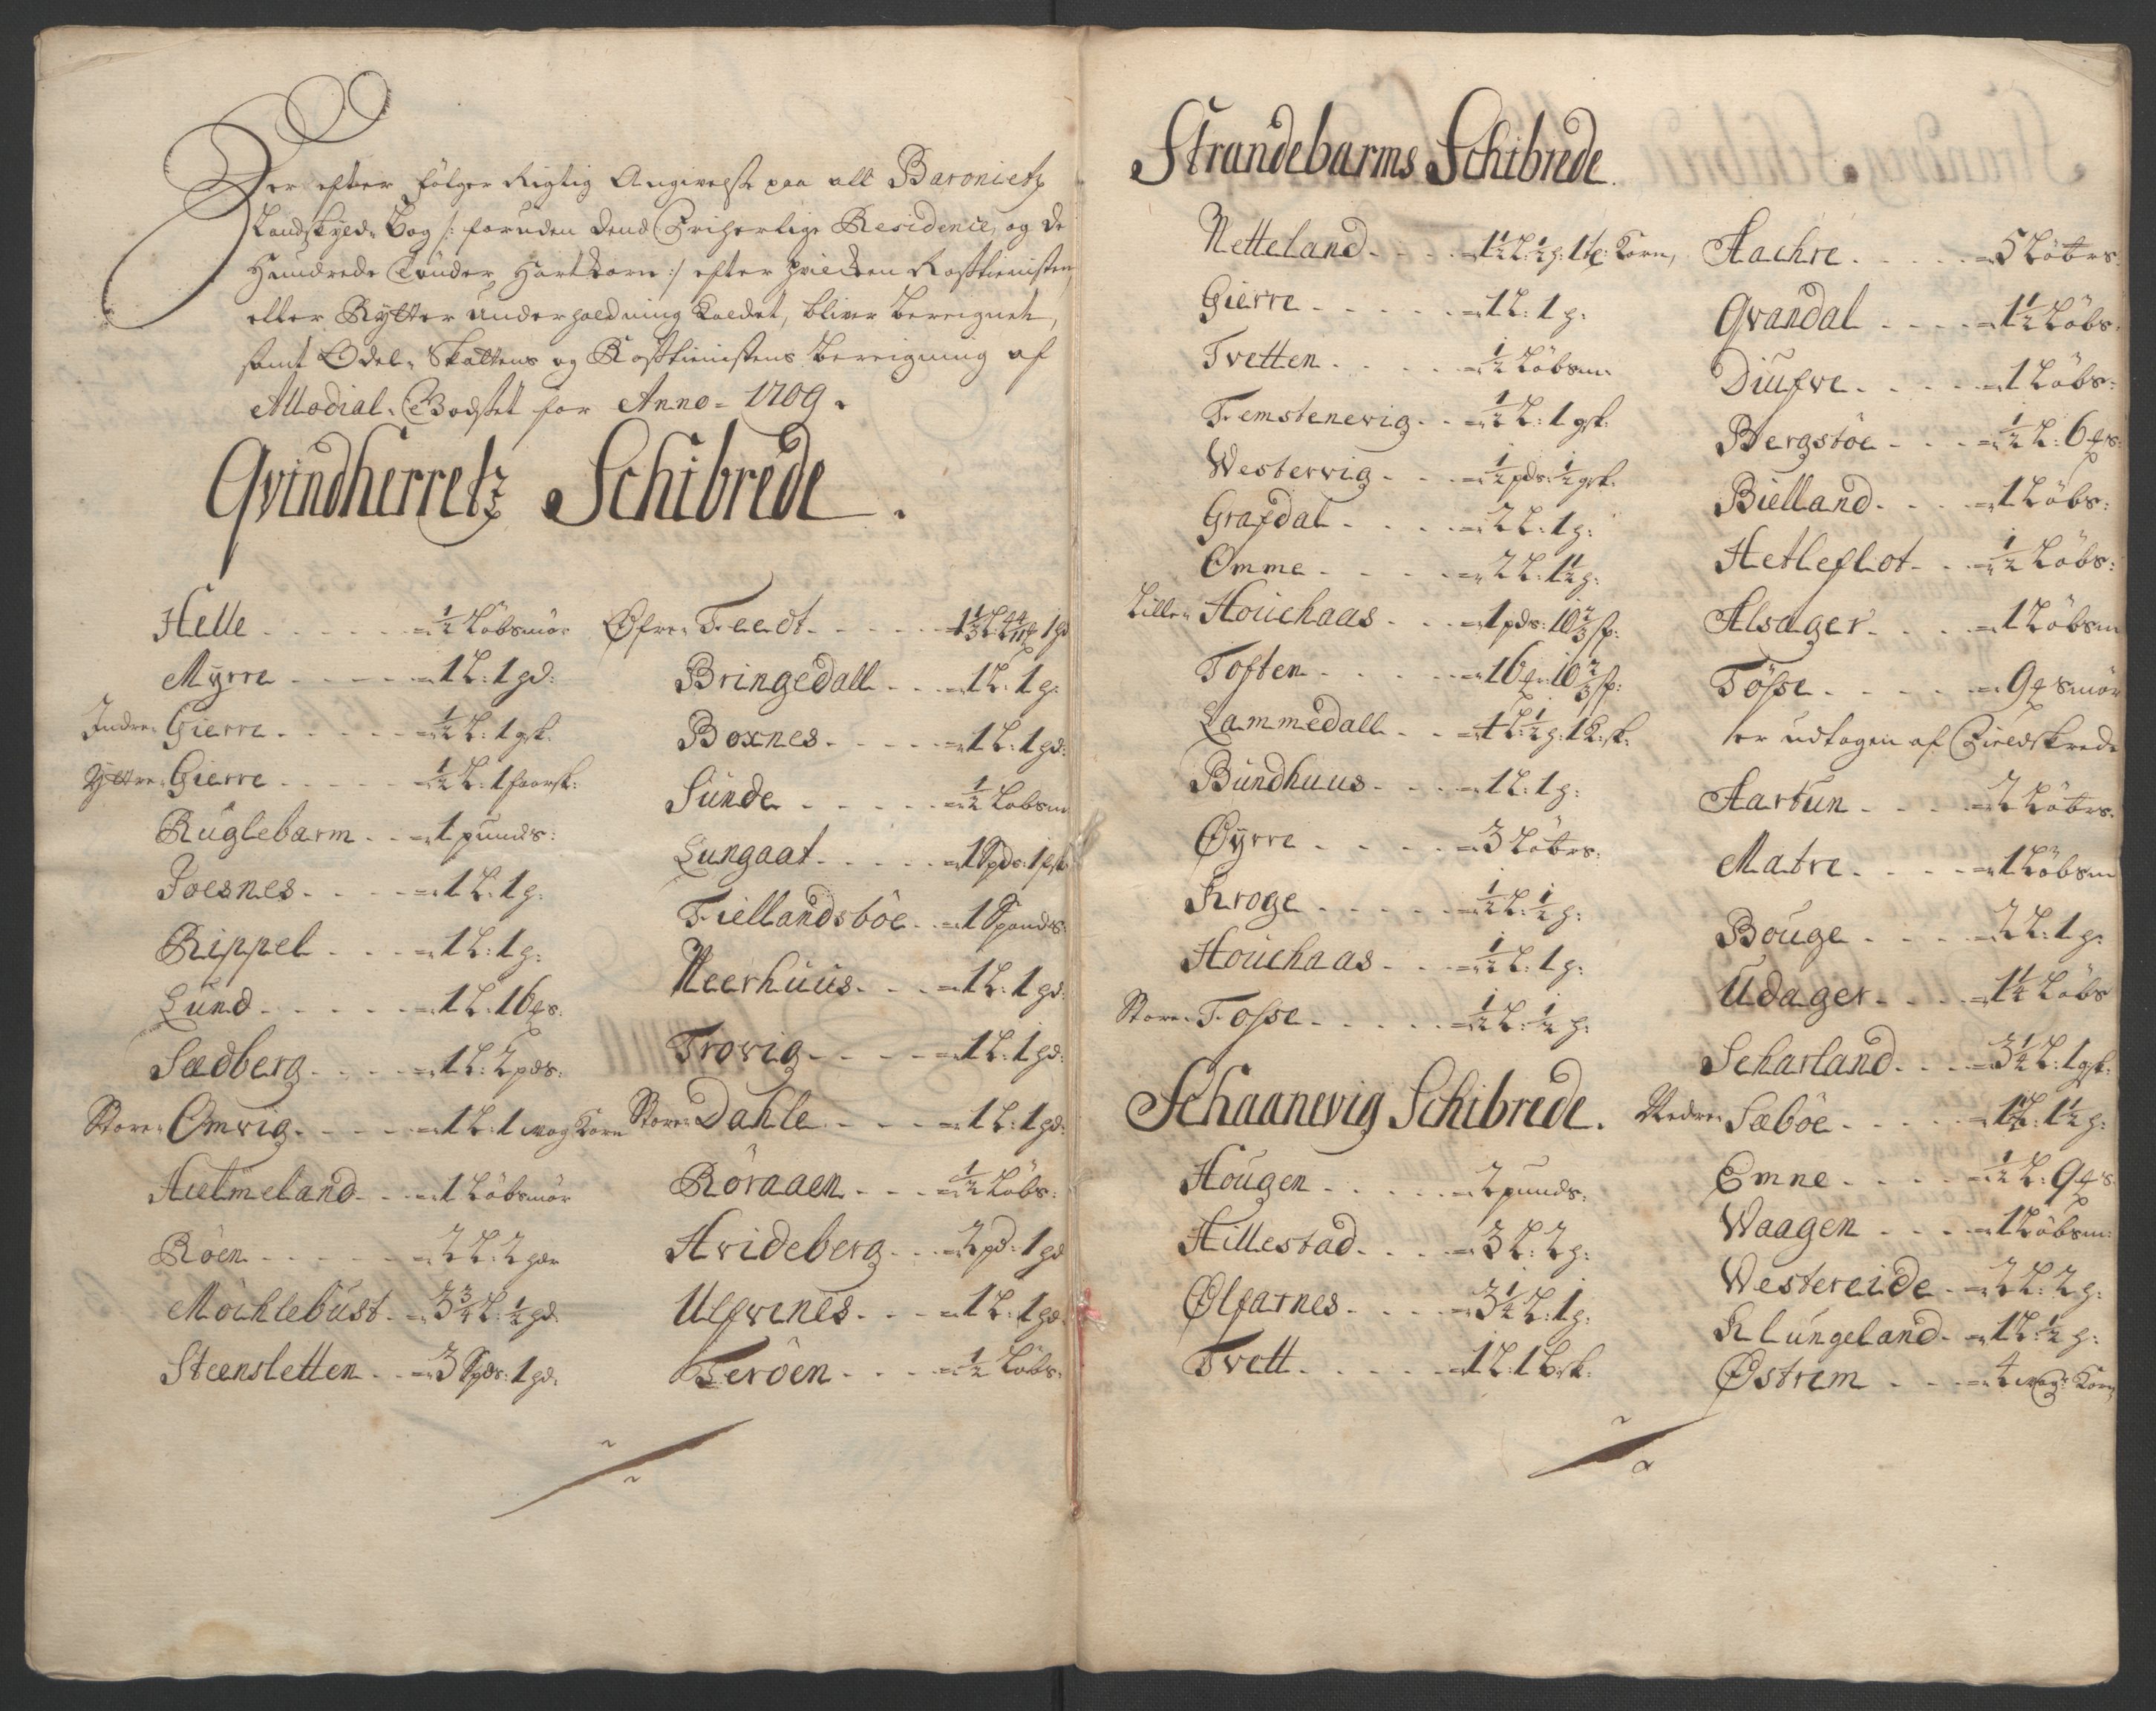 Her efter følger Rigtig Angivelse paa alt Baronietz
Landskyld Bog /: foruden dend Friherlige Residence, og de
Hundrede Tønder Hartkorn :/ efter hvilcken Rosstienisten
eller Rytter underholdning kaldet, bliver bereignet,
samt Odel-Skattens og Rosstienistens bereigning af
Allodial-Godset for Anno = 1709.
Qvindherretz Schibrede.
Helle - - - - = 1/2 Løbsmør
Myrre - - - - = 1 L: 1 gd:
Indre Gierre - - - - = 1/2 L: 1 gsk:
Yttre Gierre - - - - = 1/2 L: 1 faarsk:
Ruglebarm - - = 1 punds:
Joesnes - - - = 1 L: 1 g:
Rippel - - - = 1 L: 1 g:
Lund - - - - = 1 L: 16 s:
Sædberg - - - = 1 L: 2 pds:
Store Omvig - - - - = 1 L: 1 Korn
Hielmeland - - = 1 Løbsmør
Røen - - - - = 2 L: 2
Møchlebust - = 3 3/4 L: 1/2 gd:
Steensletten - - = 3 Spds: 1 gd:
Øfre Feedt - - - -
Bringedall - - = 1 L: 1 g:
Boxnes - - - - = 1 L: 1 gd:
Sunde - - - - = 1/2 Løbsm
Lungaat - - - - = 1 Spds: 1
Fiellandsbøe - - = 1 Spands:
Neerhuus - - - = 1 L: 1 gd:
Trovig - - - - = 1 L: 1 gd:
Store Dahle - - - - = 1 L: 1 gd:
Røraaen - - - = 1/2 Løbs:
Hvideberg - - = 2 pd: 1 gd
Ulfvenes - - - = 1 L: 1 gd
Terøen - - - = 1/2 Løbs:
Strandebarms Schibrede.
Netteland - - - - = 1 1/2 L: 1/2 g: 1 Korn,
Gierre - - - - - = 1 L: 1 g:
Tvetten - - - - = 1/2 Løbsm:
Femstenevig - - = 1/2 L: 1 gsk:
Westervig - - - = 1/2 pds: 1/2 gsk:
Grafdal - - - - = 2 L: 1 g:
Omme - - - - = 2 L: 1 1/2 g:
Lille Houchaas - - - = 1 pds: 10 2/3
Toften - - - - = 16 10 2/3
Lammedall - - = 1 L: 1/2 g:
Bundhuus - - - = 1 L: 1 g:
Øyrre - - - - = 3 Løbrs:
Kroge - - - - = 1/2 L: 1/2 g:
Houchaas - - - = 1/2 L: 1 g:
Store Fosse - - - - - = 1/2 L: 1/2 g:
Schaanevig Schibrede.
Hougen - - - - = 2 punds:
Hillestad - - - = 3 L: 2 g:
Ølfarnes - - - - = 3 1/4 L: 1 g:
Tvett - - - - - = 1 L: 1
Aachre - - - - = 5 Løbrs
Qvandal - - - - = 1 1/2 Løbs:
Diufve - - - - = 1 Løbs:
Bergstøe - - - = 1/2 L: 6 s:
Bielland - - - = 1 Løbs:
Hetleflot - - = 1/2 Løbs:
Alsager - - - - = 1 Løbsm
Tøsse - - - - = 9 smør
er udtagen af Fieldskrede
Aartun - - - - = 2 Løbrs:
Matre - - - - = 1 Løbsm
Bouge - - - - = 2 L: 1 g:
Udager - - - - = 1 1/4 Løbs
Scharland - - - = 3 1/4 L: 1 gsk:
Nedre Sæbøe - - - - = 1 L: 1 1/2 g:
Emne - - - - = 1/2 L: 9 s
Waagen - - - - = 1 Løbsm:
Westereide - = 2 L: 2 g:
Klungeland - = 1 L: 1/2 g:
Østrem - - - = 4 Korn